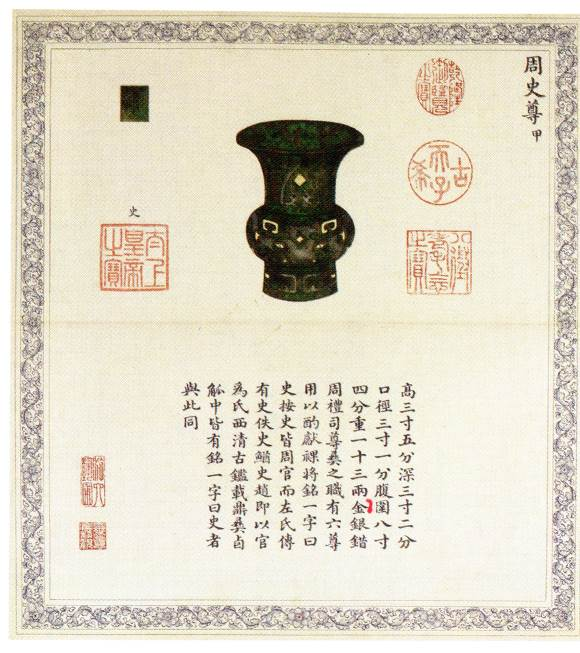 周史尊 甲
乾隆御覽之寶
古希天子
八徵耄念之寶
史
太上皇帝之寶
高三寸五分深三寸二分
口徑三寸一分腹圍八寸
四分重一十三兩金銀錯
周禮司尊彝之職有六尊
用以酌獻祼將銘一字曰
史按史皆周官而左氏傳
有史佚史鰌史趙即以官
為氏西清古鑑載鼎彝卣
觚中皆有銘一字曰史者
與此同